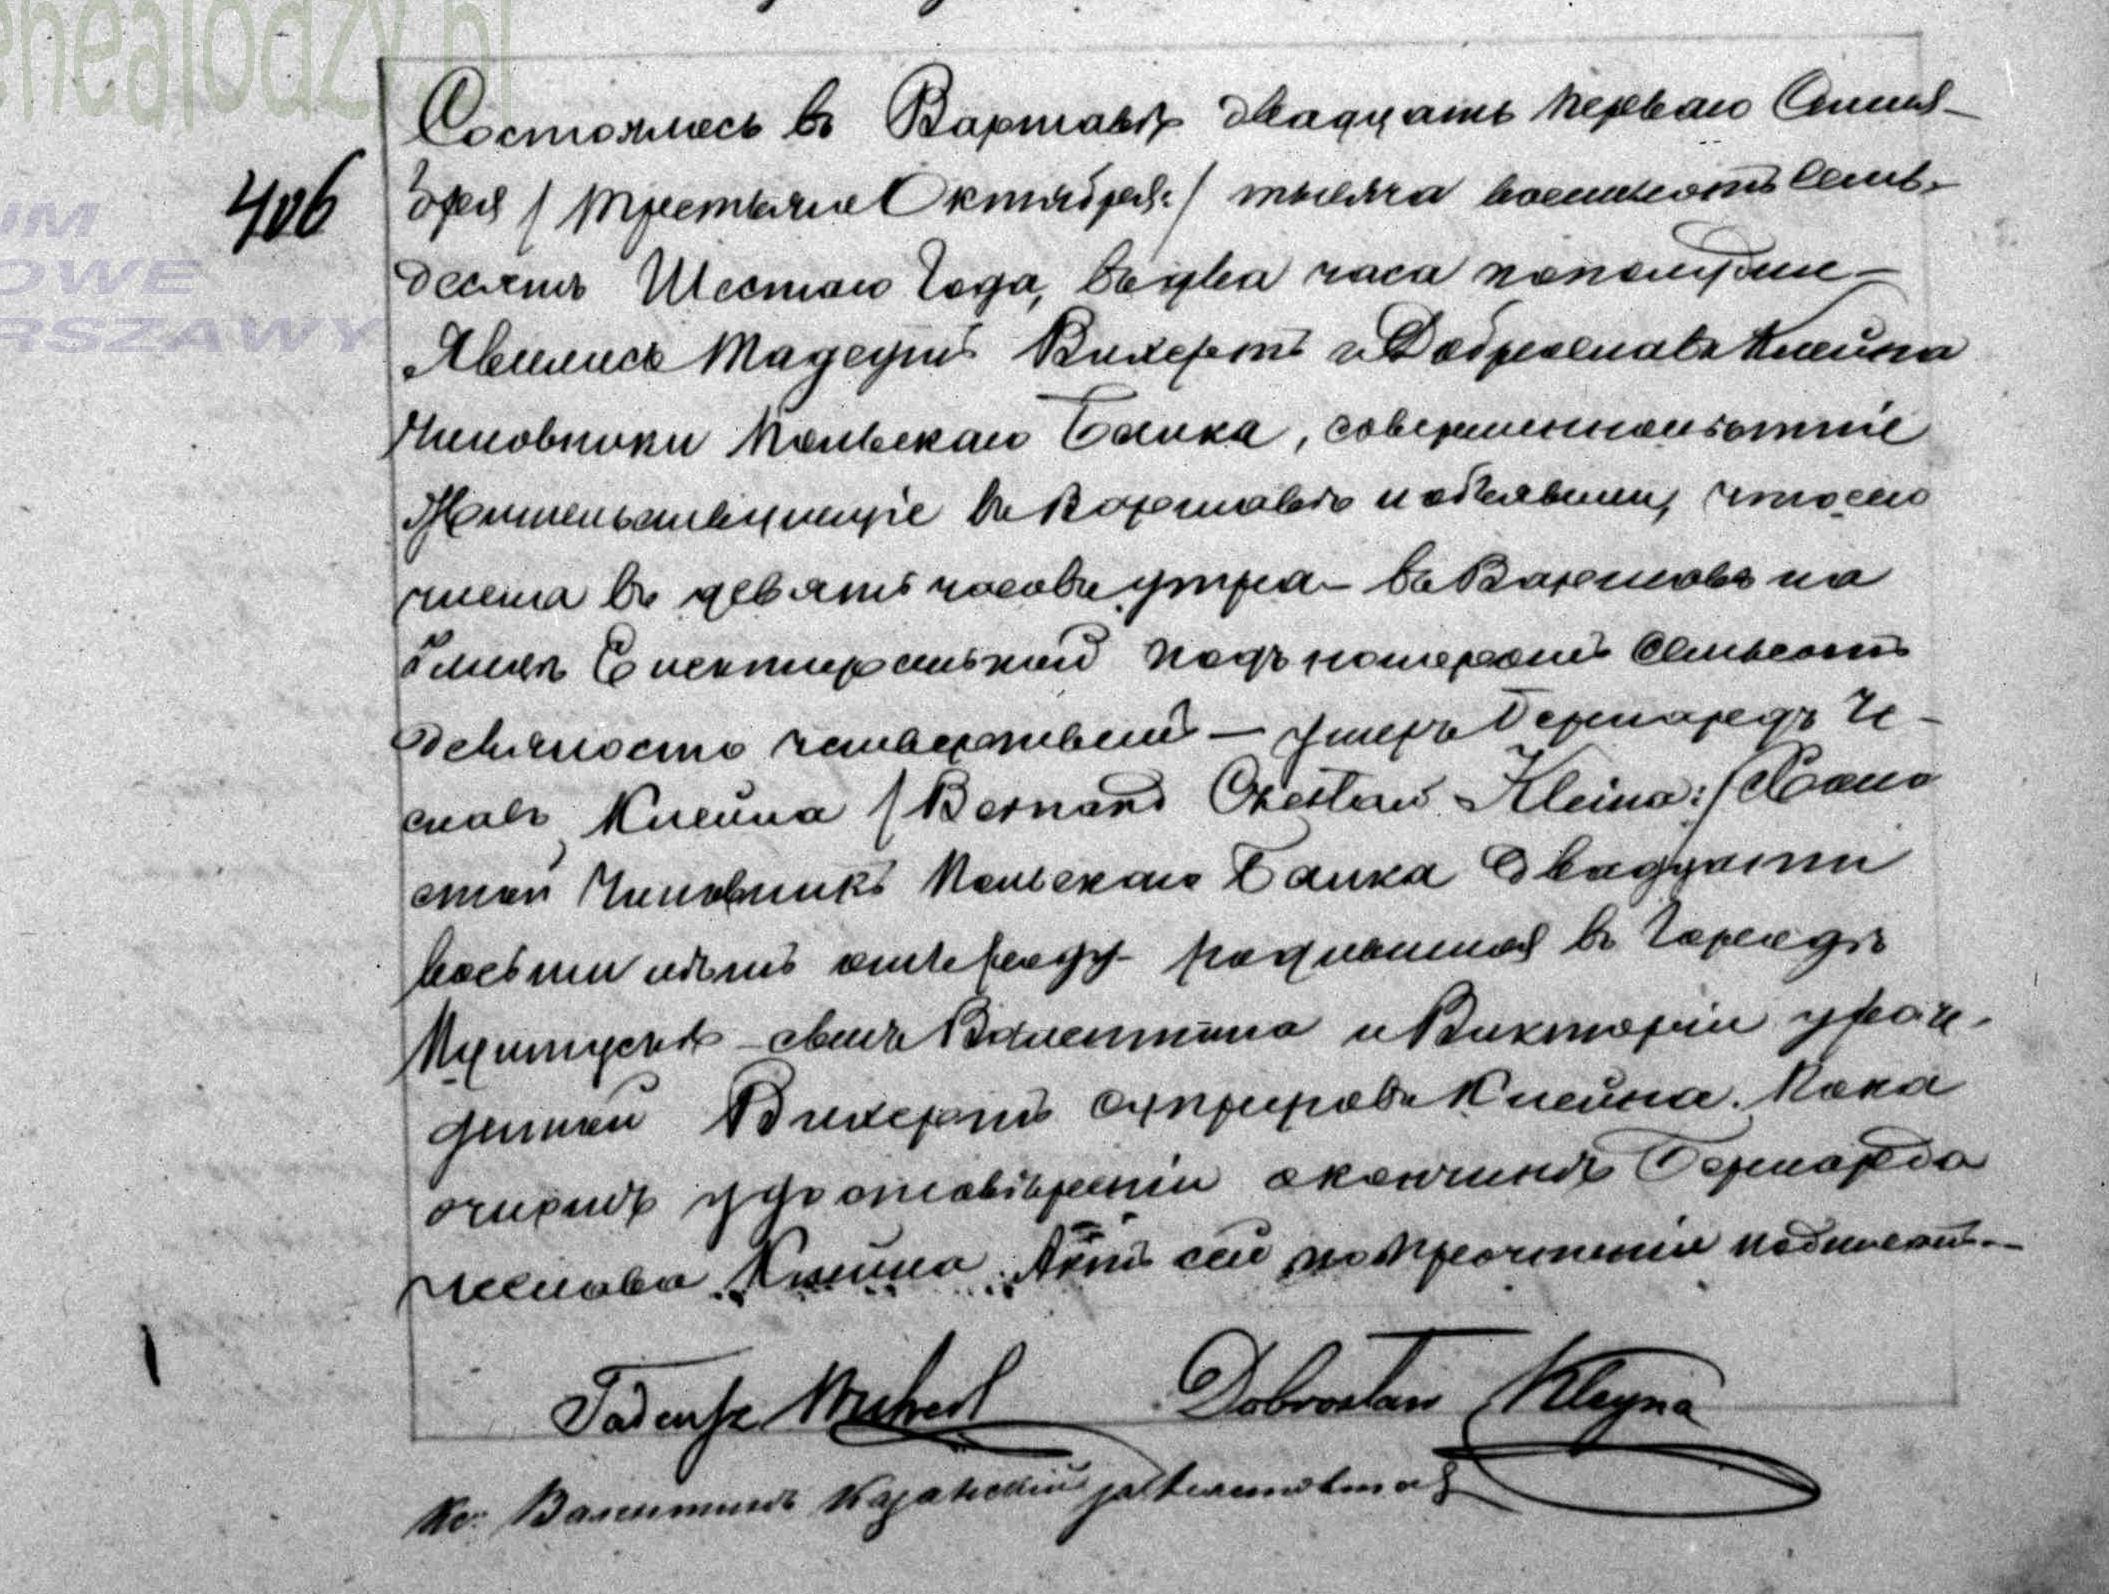 406
Состоялось въ Варшавѣ двадцать перваго Сентя-
бря /третьяго Октября:/ тысяча восемьсотъ семь-
десятъ Шестаго Года, въ два часа пополудни –
Явились Тадеушъ Вихертъ и Доброславъ Клейна
Чиновники Польскаго Банка, совершеннолѣтніе
Жительствующіе въ Варшавѣ и объявили, что сего
числа въ девять часовъ утра – въ Варшавѣ на
Улицѣ Електоральной подъ номеромъ семьсотъ
девяносто четвертымъ – умеръ Бернардъ Че-
славъ Клейна /Bernard Czesław Kleina:/ Холо
стой Чиновникъ Польскаго Банка двадцати
восьми лѣтъ отъ роду – родившійся въ Городѣ
Пултускѣ – сынъ Валентина и Викторіи урож-
денной Вихертъ супруговъ Клейна. По на
очномъ удостовѣреніи о кончинѣ Бернарда
Чеслава Клейна. Актъ сей по прочтеніи подписанъ. –
Tadeusz Wichert Dobrosław Kleyna
Кс. Валентинъ
ENEALODZY.PL
UM
OWE
RSZAWY